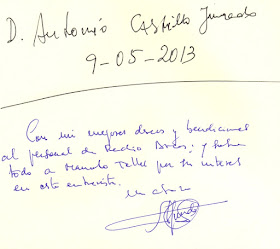 D. Antonio Castillo Jurado
9-05-2013
Con mi mejores deseos y bendiciones
al personal de Radio y sobre
todo a Manolo Tellez por su interes
en esta entrevista.
Un abrazo